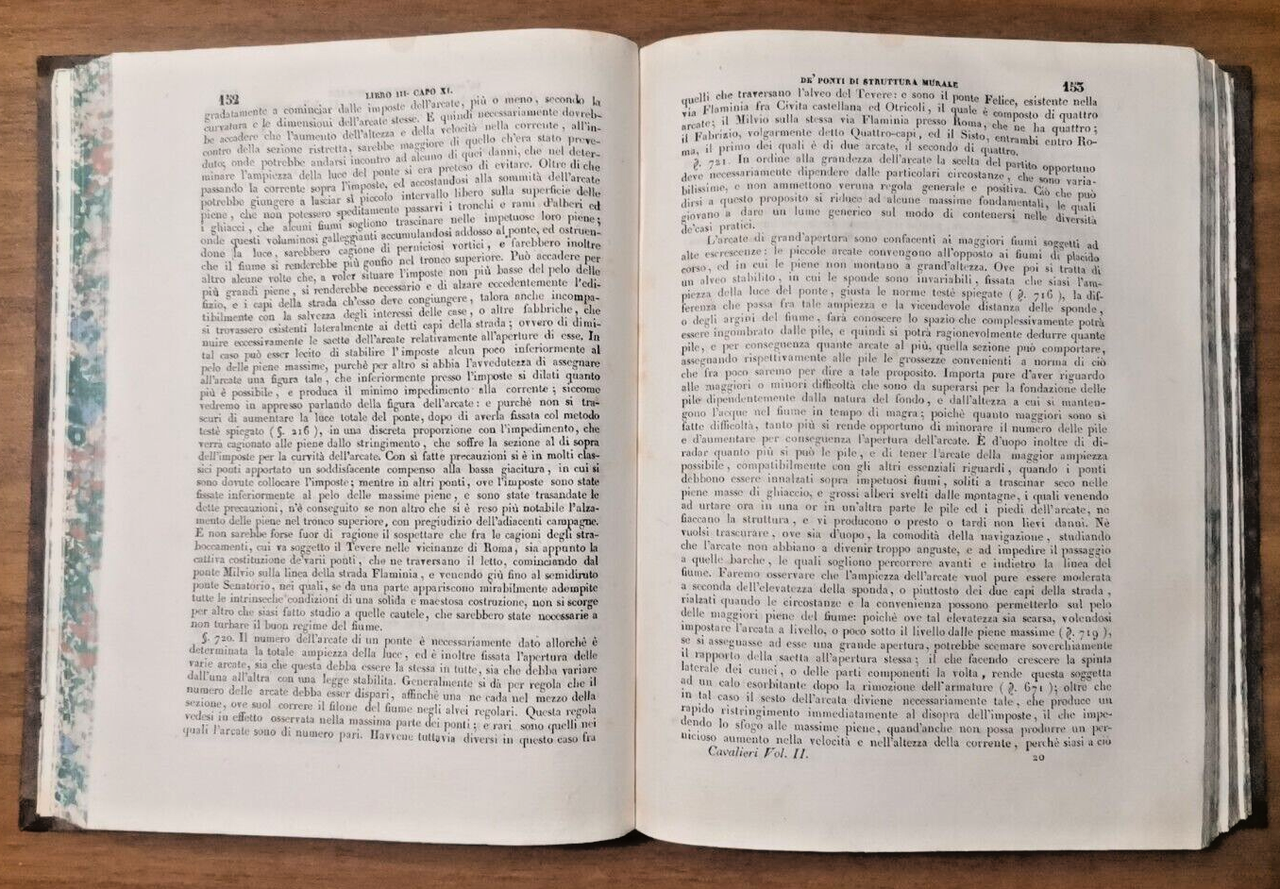 152
LIBRO III. CAPO XI.
gradatamente a cominciar dalle imposte dell'arcate, più o meno, secondo la
curvatura e le dimensioni dell'arcate stesse. E quindi necessariamente dovreb-
be accadere che l'aumento dell'altezza e della velocità nella corrente, all'in-
contro della sezione ristretta, sarebbe maggiore di quello ch'era stato preve-
duto; onde potrebbe andarsi incontro ad alcuno di quei danni, che nel deter-
minare l'ampiezza della luce del ponte si era preteso di evitare. Oltre di che
passando la corrente sopra l'imposte, ed accostandosi alla sommità dell'arcate
potrebbe giungere a lasciar sì piccolo intervallo libero sulla superficie delle
piene, che non potessero speditamente passarvi i tronchi e rami d'alberi ed
i ghiacci, che alcuni fiumi sogliono trascinare nelle impetuose loro piene;
onde questi voluminosi galleggianti accumulandosi addosso al ponte, ed ostruen-
done la luce, sarebbero cagione di perniciosi vortici, e farebbero inoltre
che il fiume si renderebbe più gonfio nel tronco superiore. Può accadere per
altro alcune volte che, a voler situare l'imposte non più basse del pelo delle
più grandi piene, si renderebbe necessario e di alzare eccedentemente l'edi-
fizio, e i capi della strada ch'esso deve congiungere, talora anche incompa-
tibilmente con la salvezza degli interessi delle case, o altre fabbriche, che
si trovassero esistenti lateralmente ai detti capi della strada; ovvero di dimi-
nuire eccessivamente le saette dell'arcate relativamente all'aperture di esse. In
tal caso può esser lecito di stabilire l'imposte alcun poco inferiormente al
pelo delle piene massime, purchè per altro si abbia l'avvedutezza di assegnare
all'arcate una figura tale, che inferiormente presso l'imposte si dilati quanto
più è possibile, e produca il minimo impedimento alla corrente; siccome
vedremo in appresso parlando della figura dell'arcate: e purchè non si tra-
scuri di aumentare la luce totale del ponte, dopo di averla fissata col metodo
testè spiegato (§. 216), in una discreta proporzione con l'impedimento, che
verrà cagionato alle piene dallo stringimento, che soffre la sezione al di sopra
dell'imposte per la curvità dell'arcate. Con sì fatte precauzioni si è in molti clas-
sici ponti apportato un soddisfacente compenso alla bassa giacitura, in cui si
sono dovute collocare l'imposte; mentre in altri ponti, ove l'imposte sono state
fissate inferiormente al pelo delle massime piene, e sono state trasandate le
dette precauzioni, n'è conseguito se non altro che si è reso più notabile l'alza-
mento delle piene nel tronco superiore, con pregiudizio dell'adiacenti campagne.
E non sarebbe forse fuor di ragione il sospettare che fra le cagioni degli stra-
boccamenti, cui va soggetto il Tevere nelle vicinanze di Roma, sia appunto la
cattiva costituzione de'varii ponti, che ne traversano il letto, cominciando dal
ponte Milvio sulla linea della strada Flaminia, e venendo giù fino al semidiruto
ponte Senatorio, nei quali, se da una parte appariscono mirabilmente adempite
tutte le intrinseche condizioni di una solida e maestosa costruzione, non si scorge
per altro che siasi fatto studio a quelle cautele, che sarebbero state necessarie a
non turbare il buon regime del fiume.
§. 720. Il numero dell'arcate di un ponte è necessariamente dato allorchè è
determinata la totale ampiezza della luce, ed è inoltre fissata l'apertura delle
varie arcate, sia che questa debba essere la stessa in tutte, sia che debba variare
dall'una all'altra con una legge stabilita. Generalmente si dà per regola che il
numero delle arcate debba esser dispari, affinchè una ne cada nel mezzo della
sezione, ove suol correre il filone del fiume negli alvei regolari. Questa regola
vedesi in effetto osservata nella massima parte dei ponti; e rari sono quelli nei
quali l'arcate sono di numero pari. Havvene tuttavia diversi in questo caso fra
DE' PONTI DI STRUTTURA MURALE
153
quelli che traversano l'alveo del Tevere: e sono il ponte Felice, esistente nella
via Flaminia fra Civita castellana ed Otricoli, il quale è composto di quattro
arcate; il Milvio sulla stessa via Flaminia presso Roma, che ne ha quattro;
il Fabrizio, volgarmente detto Quattro-capi, ed il Sisto, entrambi entro Ro-
ma, il primo dei quali è di due arcate, il secondo di quattro.
§. 721. In ordine alla grandezza dell'arcate la scelta del partito opportuno
deve necessariamente dipendere dalle particolari circostanze, che sono varia-
bilissime, e non ammettono veruna regola generale e positiva. Ciò che può
dirsi a questo proposito si riduce ad alcune massime fondamentali, le quali
giovano a dare un lume generico sul modo di contenersi nelle diversità
de'casi pratici.
L'arcate di grand'apertura sono confacenti ai maggiori fiumi soggetti ad
alte escrescenze: le piccole arcate convengono all'opposto ai fiumi di placido
corso, ed in cui le piene non montano a grand'altezza. Ove poi si tratta di
un alveo stabilito, in cui le sponde sono invariabili, fissata che siasi l'am-
piezza della luce del ponte, giusta le norme testè spiegate (§. 716), la dif-
ferenza che passa fra tale ampiezza e la vicendevole distanza delle sponde,
o degli argini del fiume, farà conoscere lo spazio che complessivamente potrà
essere ingombrato dalle pile, e quindi si potrà ragionevolmente dedurre quante
pile, e per conseguenza quante arcate al più, quella sezione può comportare,
assegnando rispettivamente alle pile le grossezze convenienti a norma di ciò
che fra poco saremo per dire a tale proposito. Importa pure d'aver riguardo
alle maggiori o minori difficoltà che sono da superarsi per la fondazione delle
pile dipendentemente dalla natura del fondo, e dall'altezza a cui si manten-
gono l'acque nel fiume in tempo di magra; poichè quanto maggiori sono sì
fatte difficoltà, tanto più si rende opportuno di minorare il numero delle pile
e d'aumentare per conseguenza l'apertura dell'arcate. È d'uopo inoltre di di-
radar quanto più si può le pile, e di tener l'arcate della maggior ampiezza
possibile, compatibilmente con gli altri essenziali riguardi, quando i ponti
debbono essere innalzati sopra impetuosi fiumi, soliti a trascinar seco nelle
piene masse di ghiaccio, e grossi alberi svelti dalle montagne, i quali venendo
ad urtare ora in una or in un'altra parte le pile ed i piedi dell'arcate, ne
fiaccano la struttura, e vi producono o presto o tardi non lievi danni. Nè
vuolsi trascurare, ove sia d'uopo, la comodità della navigazione, studiando
che l'arcate non abbiano a divenir troppo anguste, e ad impedire il passaggio
a quelle barche, le quali sogliono percorrere avanti e indietro la linea del
fiume. Faremo osservare che l'ampiezza dell'arcate vuol pure essere moderata
a seconda dell'elevatezza della sponda, o piuttosto dei due capi della strada,
rialzati quando le circostanze e la convenienza possono permetterlo sul pelo
delle maggiori piene del fiume: poichè ove tal elevatezza sia scarsa, volendosi
impostare l'arcata a livello, o poco sotto il livello dalle piene massime (§. 719),
se si assegnasse ad esse una grande apertura, potrebbe scemare soverchiamente
il rapporto della saetta all'apertura stessa; il che facendo crescere la spinta
laterale dei cunei, o delle parti componenti la volta, rende questa soggetta
ad un calo esorbitante dopo la rimozione dell'armature (§. 671); oltre che
in tal caso il sesto dell'arcata diviene necessariamente tale, che produce un
rapido ristringimento immediatamente al disopra dell'imposte, il che impe-
dendo lo sfogo alle massime piene, quand'anche non possa produrre un per-
nicioso aumento nella velocità e nell'altezza della corrente, perchè siasi a ciò
Cavalieri Vol. II.
20